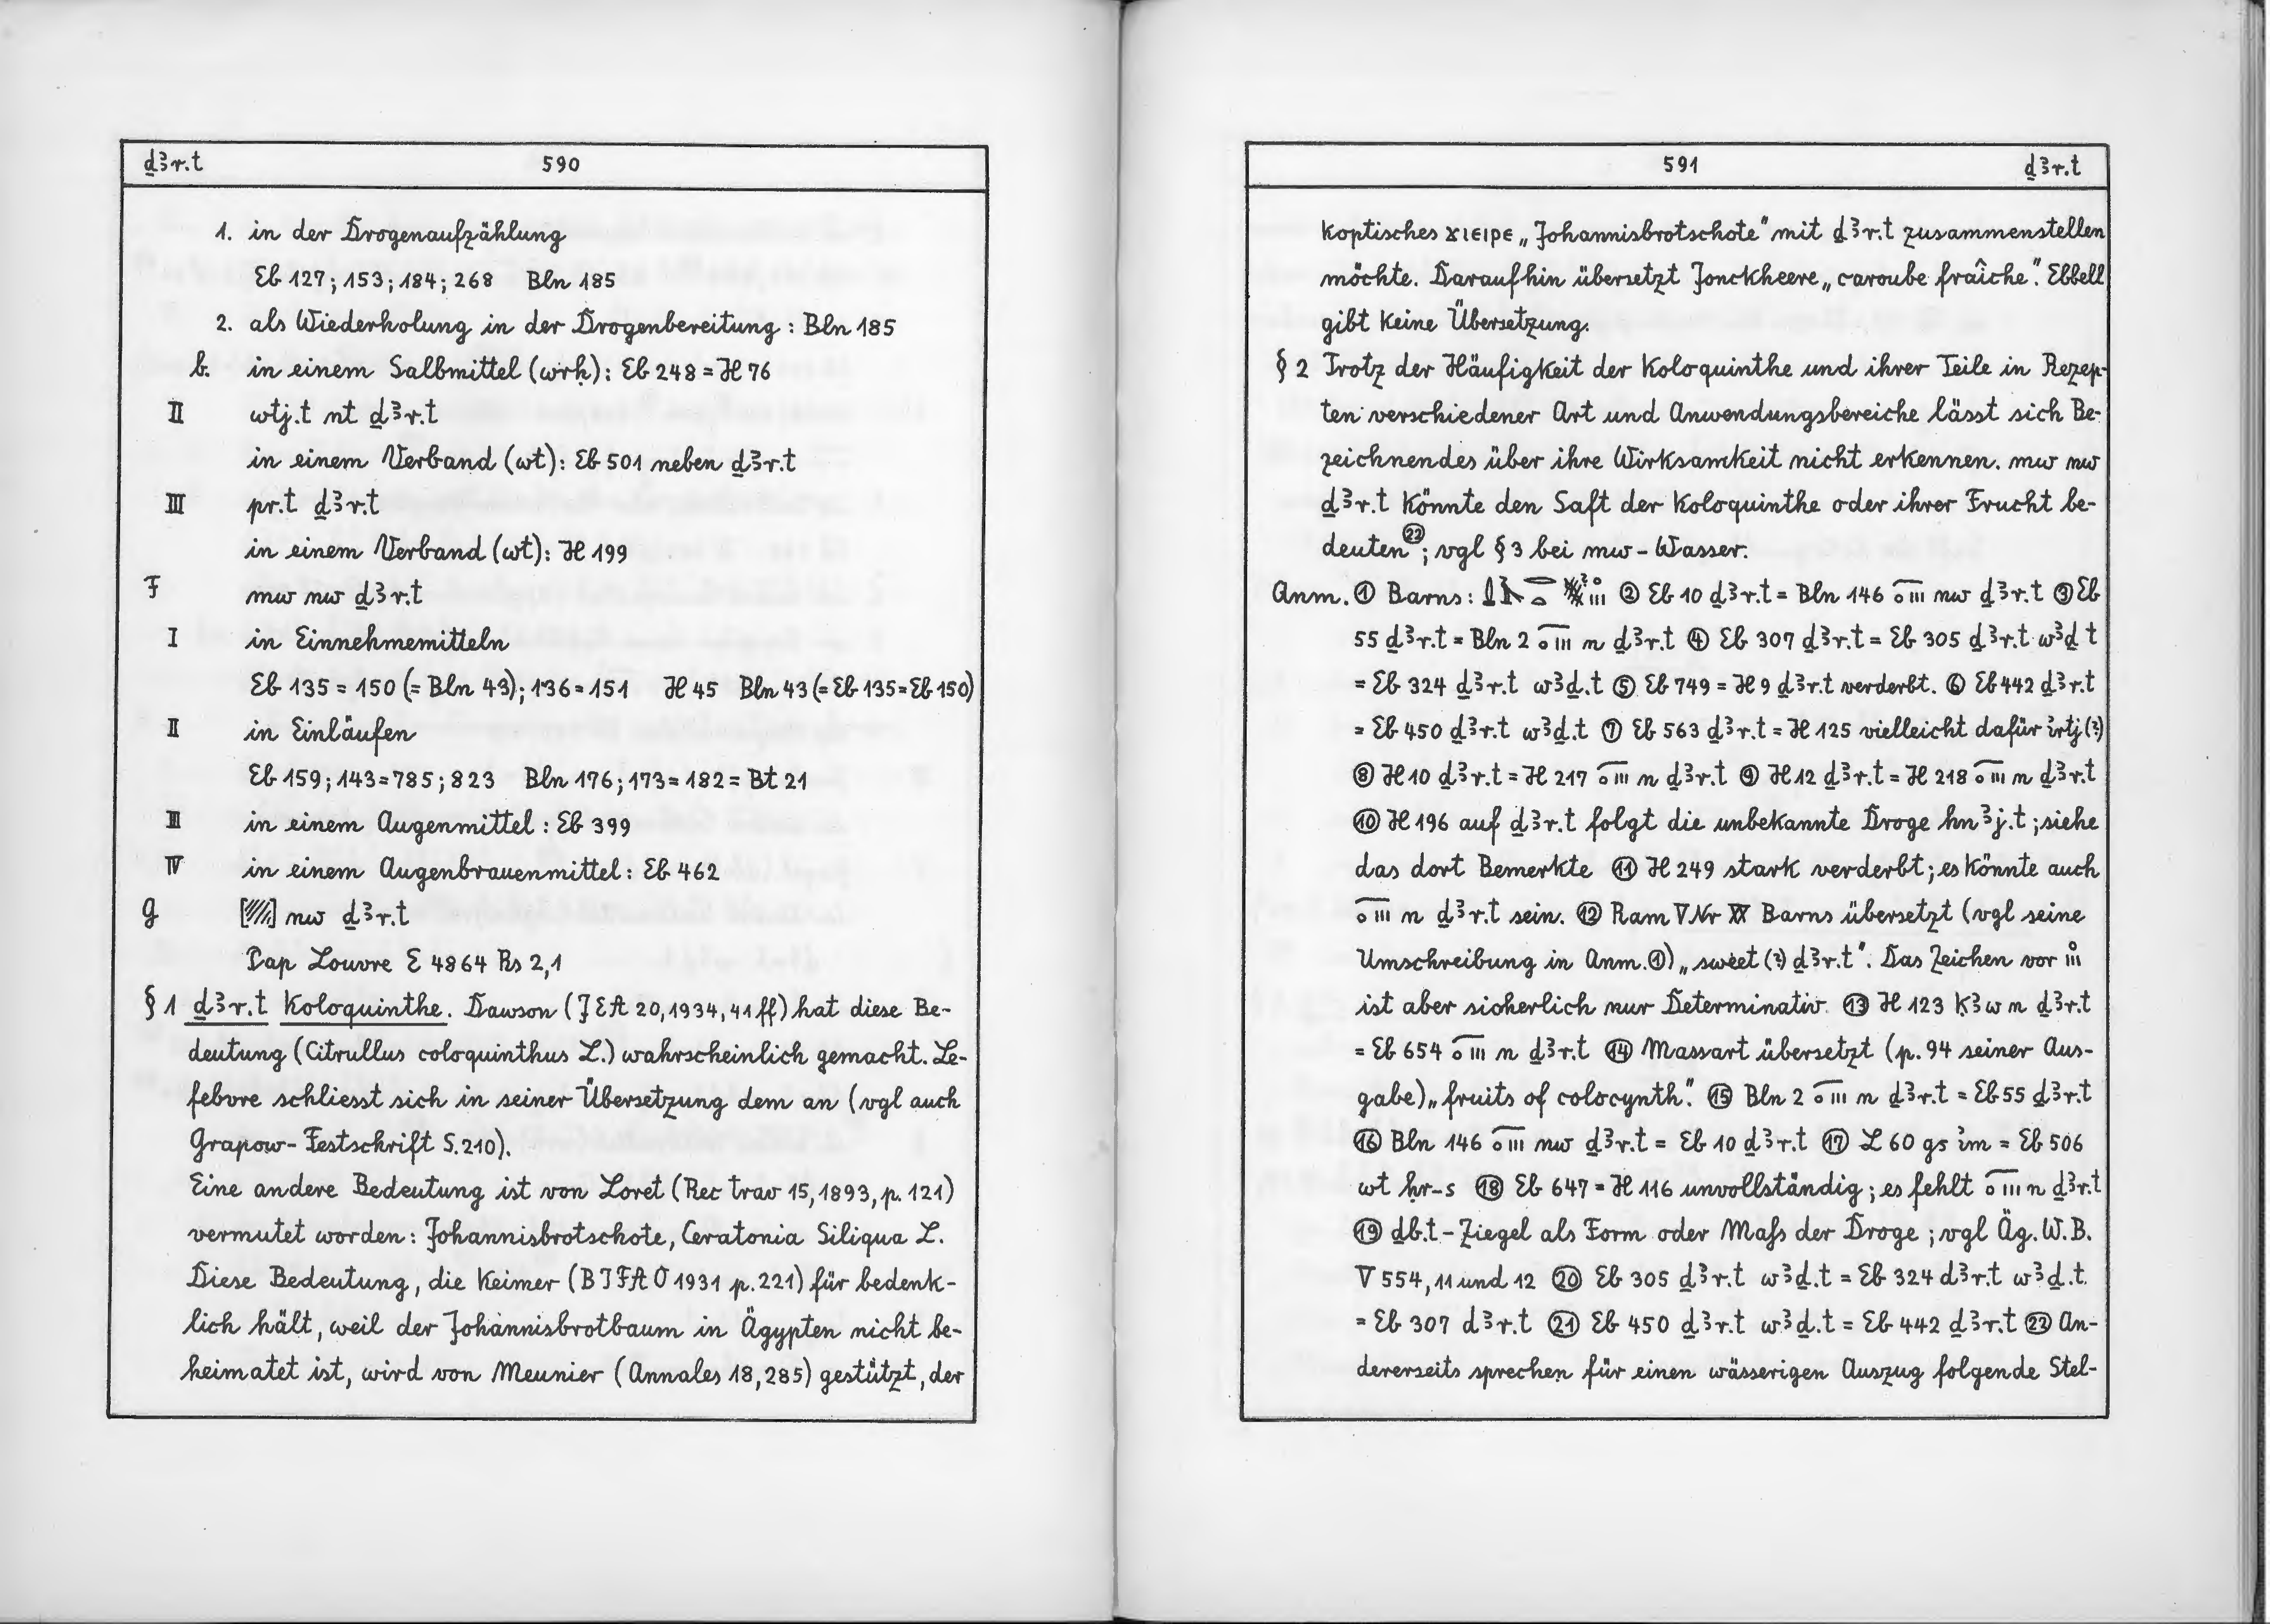 ḏꜣr.t 590
1. in der Drogenaufzählung
Eb 127; 153; 184; 268 Bln 185
2. als Wiederholung in der Drogenbereitung : Bln 185
b. in einem Salbmittel (wrḥ): Eb 248 = H 76
II wtj.t nt ḏꜣr.t
in einem Verband (wt): Eb 501 neben ḏꜣr.t
III pr.t ḏꜣr.t
in einem Verband (wt): H 199
F mw nw ḏꜣr.t
I in Einnehmemitteln
Eb 135 = 150 (= Bln 43); 136 = 151 H 45 Bln 43 (= Eb 135 = Eb 150)
II in Einläufen
Eb 159; 143 = 785; 823 Bln 176; 173 = 182 = Bt 21
III in einem Augenmittel : Eb 399
IV in einem Augenbrauenmittel: Eb 462
G [///] nw ḏꜣr.t
Pap Louvre E 4864 Rs 2,1
§ 1 ḏꜣr.t Koloquinthe. Dawson (JEA 20, 1934, 41 ff) hat diese Be-
deutung (Citrullus coloquinthus L.) wahrscheinlich gemacht. Le-
febvre schliesst sich in seiner Übersetzung dem an (vgl auch
Grapow-Festschrift S. 210).
Eine andere Bedeutung ist von Loret (Rec trav 15, 1893, p. 121)
vermutet worden: Johannisbrotschote, Ceratonia Siliqua L.
Diese Bedeutung, die Keimer (BIFAO 1931 p. 221) für bedenk-
lich hält, weil der Johannisbrotbaum in Ägypten nicht be-
heimatet ist, wird von Meunier (Annales 18, 285) gestützt, der
591 ḏꜣr.t
koptisches ϫιειρε „Johannisbrotschote" mit ḏꜣr.t zusammenstellen
möchte. Daraufhin übersetzt Jonckheere „caroube fraîche". Ebbell
gibt keine Übersetzung.
§ 2 Trotz der Häufigkeit der Koloquinthe und ihrer Teile in Rezep-
ten verschiedener Art und Anwendungsbereiche lässt sich Be-
zeichnendes über ihre Wirksamkeit nicht erkennen. mw nw
ḏꜣr.t könnte den Saft der Koloquinthe oder ihrer Frucht be-
deuten ㉒; vgl § 3 bei mw-Wasser.
Anm. ① Barns: ② Eb 10 ḏꜣr.t = Bln 146 nw ḏꜣr.t ③ Eb
55 ḏꜣr.t = Bln 2 n ḏꜣr.t ④ Eb 307 ḏꜣr.t = Eb 305 ḏꜣr.t wꜣḏ t
= Eb 324 ḏꜣr.t wꜣḏ.t ⑤ Eb 749 = H 9 ḏꜣr.t verderbt. ⑥ Eb 442 ḏꜣr.t
= Eb 450 ḏꜣr.t wꜣḏ.t ⑦ Eb 563 ḏꜣr.t = H 125 vielleicht dafür ỉrtj (?)
⑧ H 10 ḏꜣr.t = H 217 n ḏꜣr.t ⑨ H 12 ḏꜣr.t = H 218 n ḏꜣr.t
⑩ H 196 auf ḏꜣr.t folgt die unbekannte Droge hnꜣj.t; siehe
das dort Bemerkte ⑪ H 249 stark verderbt; es könnte auch
n ḏꜣr.t sein. ⑫ Ram V Nr XX Barns übersetzt (vgl seine
Umschreibung in Anm. ①) „sweet (?) ḏꜣr.t". Das Zeichen vor
ist aber sicherlich nur Determinativ. ⑬ H 123 kꜣw n ḏꜣr.t
= Eb 654 n ḏꜣr.t ⑭ Massart übersetzt (p. 94 seiner Aus-
gabe) „fruits of colocynth". ⑮ Bln 2 n ḏꜣr.t = Eb 55 ḏꜣr.t
⑯ Bln 146 nw ḏꜣr.t = Eb 10 ḏꜣr.t ⑰ L 60 gs ỉm = Eb 506
wt ḥr-s ⑱ Eb 647 = H 116 unvollständig; es fehlt n ḏꜣr.t
⑲ ḏb.t-Ziegel als Form oder Maß der Droge; vgl Äg. W.B.
V 554, 11 und 12 ⑳ Eb 305 ḏꜣr.t wꜣḏ.t = Eb 324 ḏꜣr.t wꜣḏ.t.
= Eb 307 ḏꜣr.t ㉑ Eb 450 ḏꜣr.t wꜣḏ.t = Eb 442 ḏꜣr.t ㉒ An-
dererseits sprechen für einen wässerigen Auszug folgende Stel-